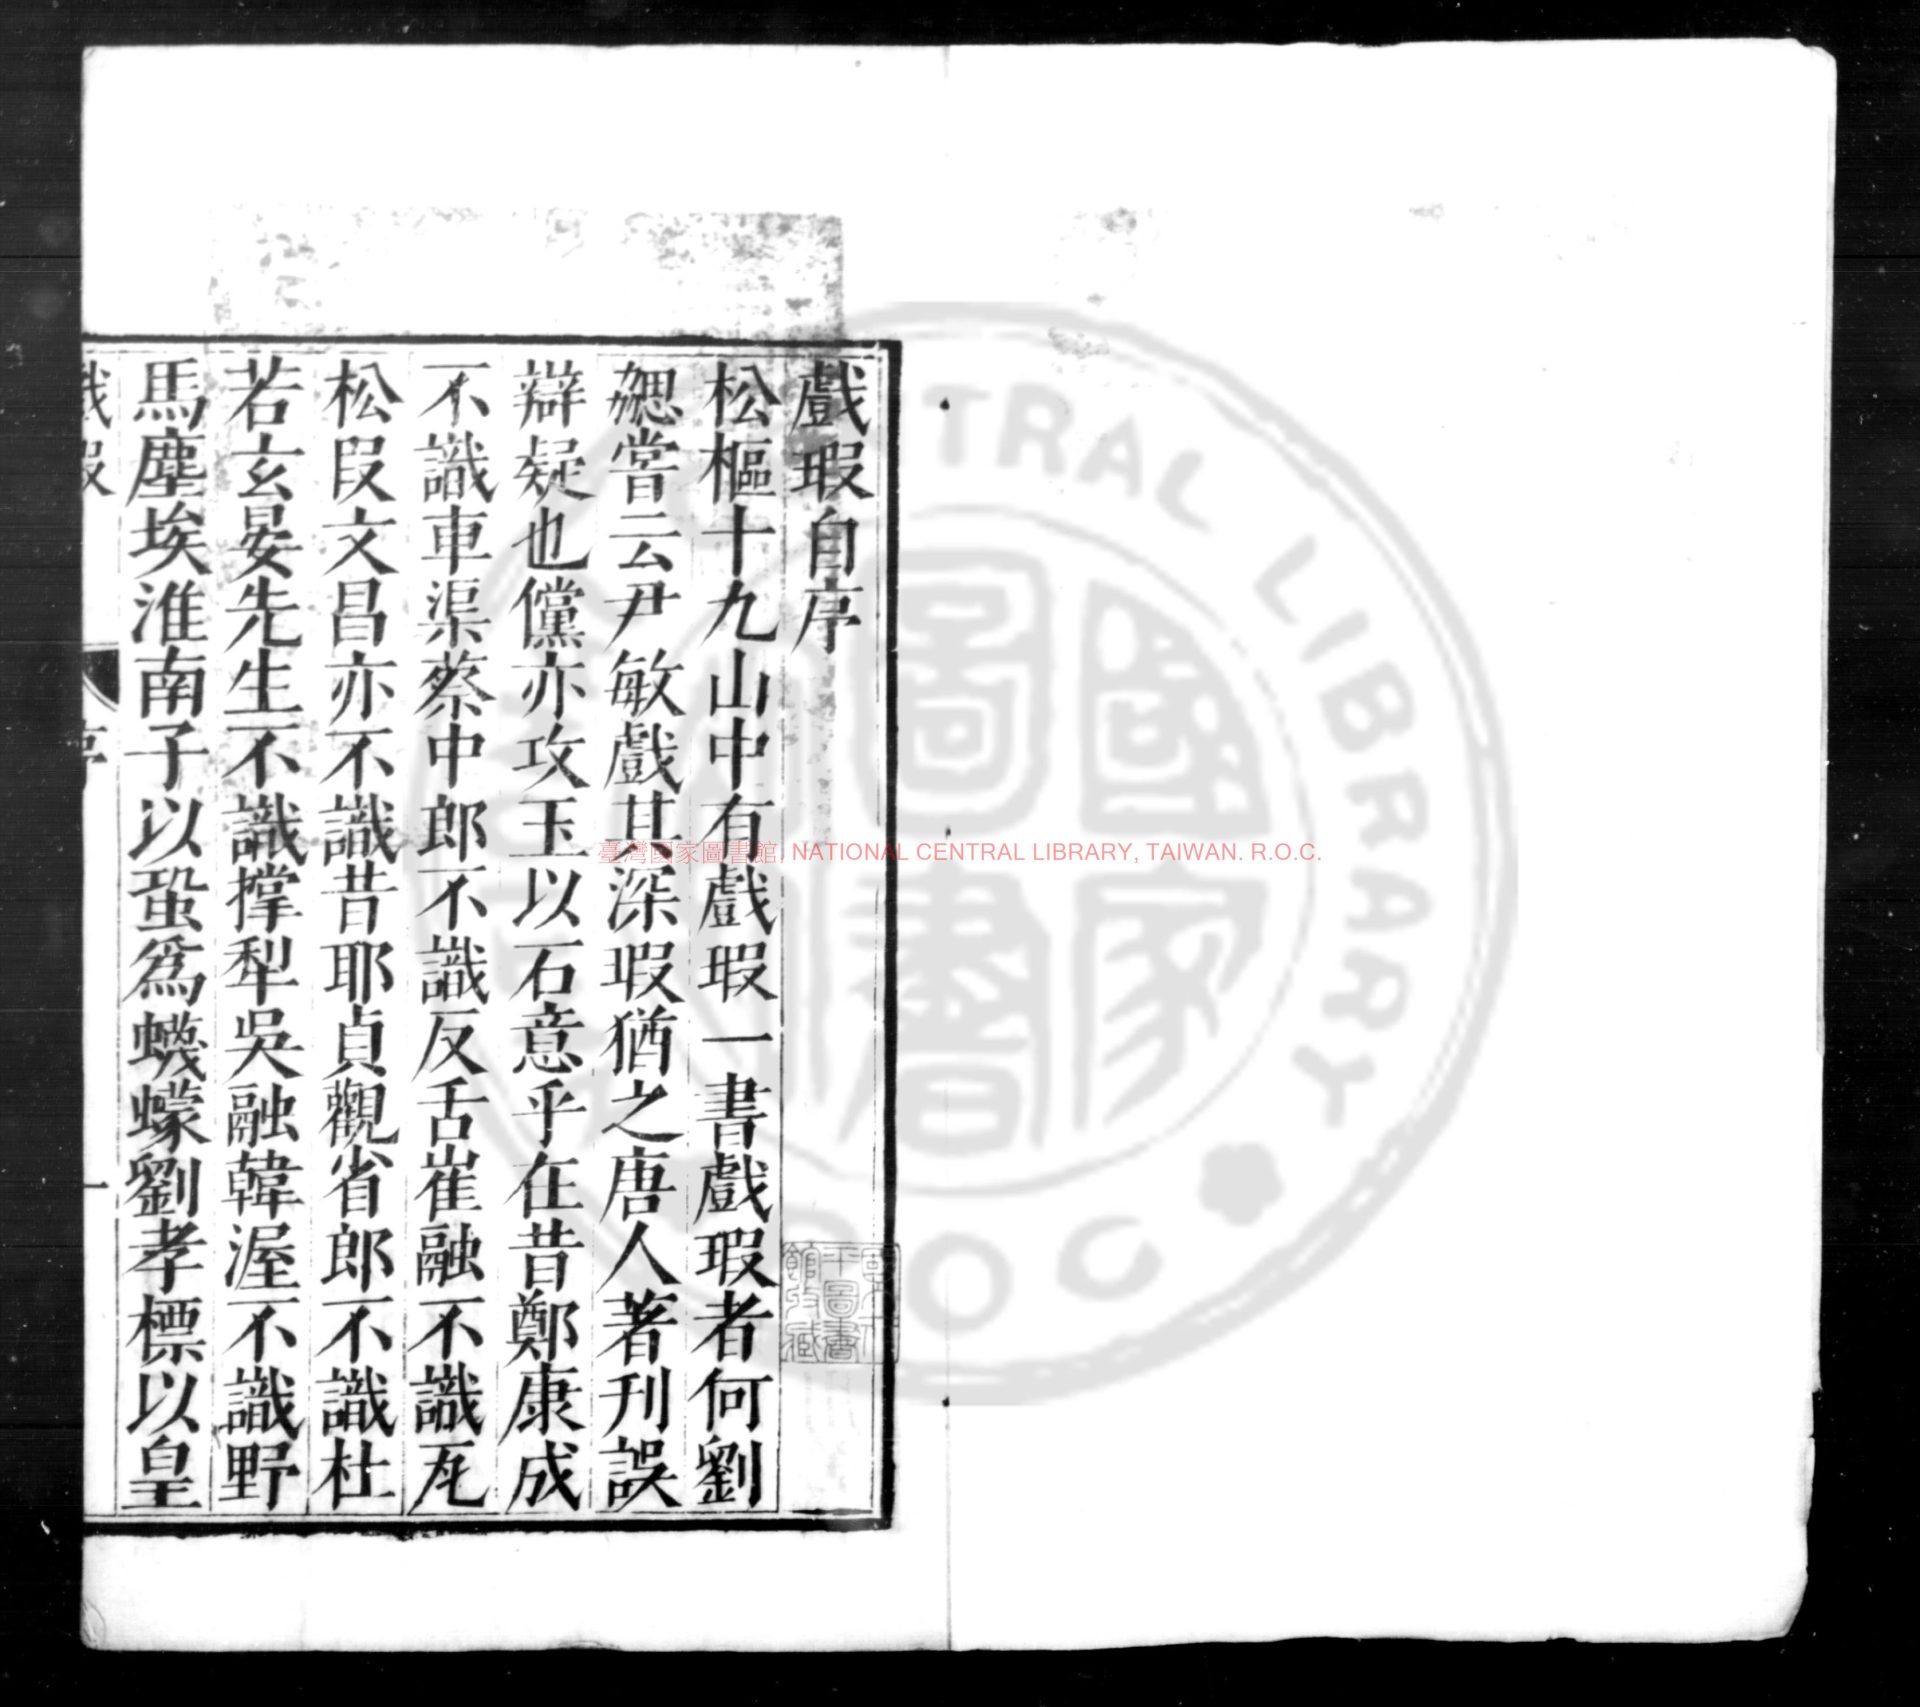 戲瑕自序
松樞十九山中有戲瑕一書戲瑕者何劉
勰嘗云尹敏戲其深瑕猶之唐人著刊誤
辯疑也儻亦攻玉以石意乎在昔鄭康成
不識車渠蔡中郎不識反舌崔融不識瓦
松段文昌亦不識昔耶貞觀省郎不識杜
若玄晏先生不識撑犁吳融韓渥不識野
馬塵埃淮南子以蛩為蠛蠓劉孝標以皇
戲瑕
序
一
臺灣國家圖書館, NATIONAL CENTRAL LIBRARY, TAIWAN. R.O.C.
國家圖書
CENTRAL LIBRARY
ROC